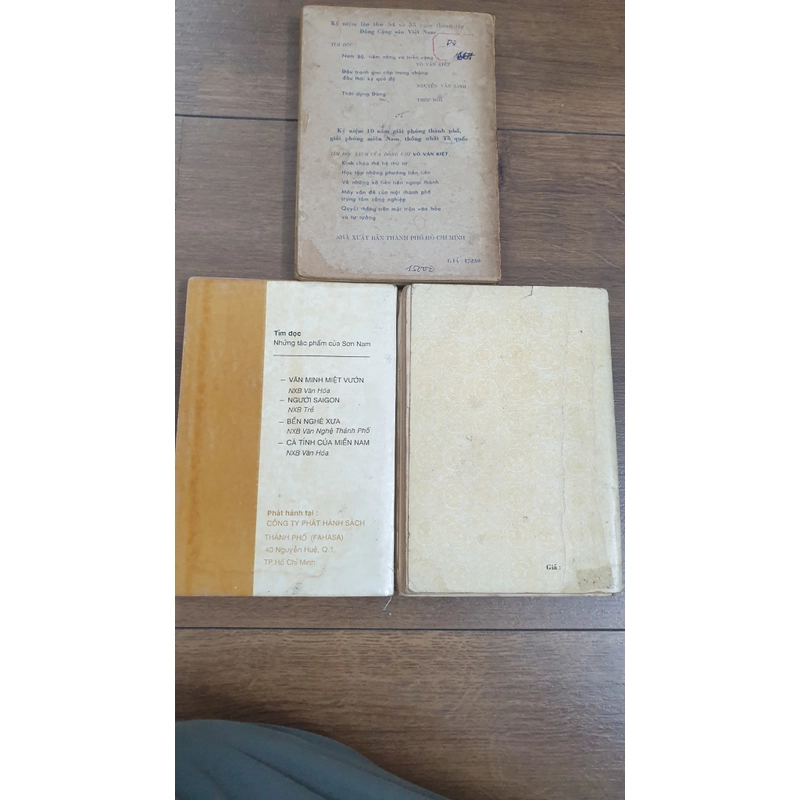 Kỷ niệm lần thứ 54 và 55 năm thành lập
Đảng Cộng sản Việt Nam
TÌM ĐỌC
Nam Bộ, tiềm năng và triển vọng
VÕ VĂN KIỆT
Đấu tranh giai cấp trong chặng
đầu thời kỳ quá độ
NGUYỄN VĂN LINH
Thời dựng Đảng
THÉP MỚI
Kỷ niệm 10 năm giải phóng thành phố,
giải phóng miền Nam, thống nhất Tổ quốc
TÌM ĐỌC SÁCH CỦA ĐỒNG CHÍ VÕ VĂN KIỆT
Kính chào thế hệ thứ tư
Học tập những phương tiên tiến
Về những kẻ tiên tiến ngoại thành
Mấy vấn đề của một thành phố
trung tâm công nghiệp
Quyết thắng trên mặt trận văn hóa
và tư tưởng
NHÀ XUẤT BẢN THÀNH PHỐ HỒ CHÍ MINH
GIÁ
15000
Tìm đọc
Những tác phẩm của Sơn Nam
– VĂN MINH MIỆT VƯỜN
NXB Văn Hóa
– NGƯỜI SAIGON
NXB Trẻ
– BẾN NGHÉ XƯA
NXB Văn Nghệ Thành Phố
– CÁ TÍNH CỦA MIỀN NAM
NXB Văn Hóa
Phát hành tại :
CÔNG TY PHÁT HÀNH SÁCH
THÀNH PHỐ (FAHASA)
40 Nguyễn Huệ, Q.1
TP.Hồ Chí Minh
Giá :